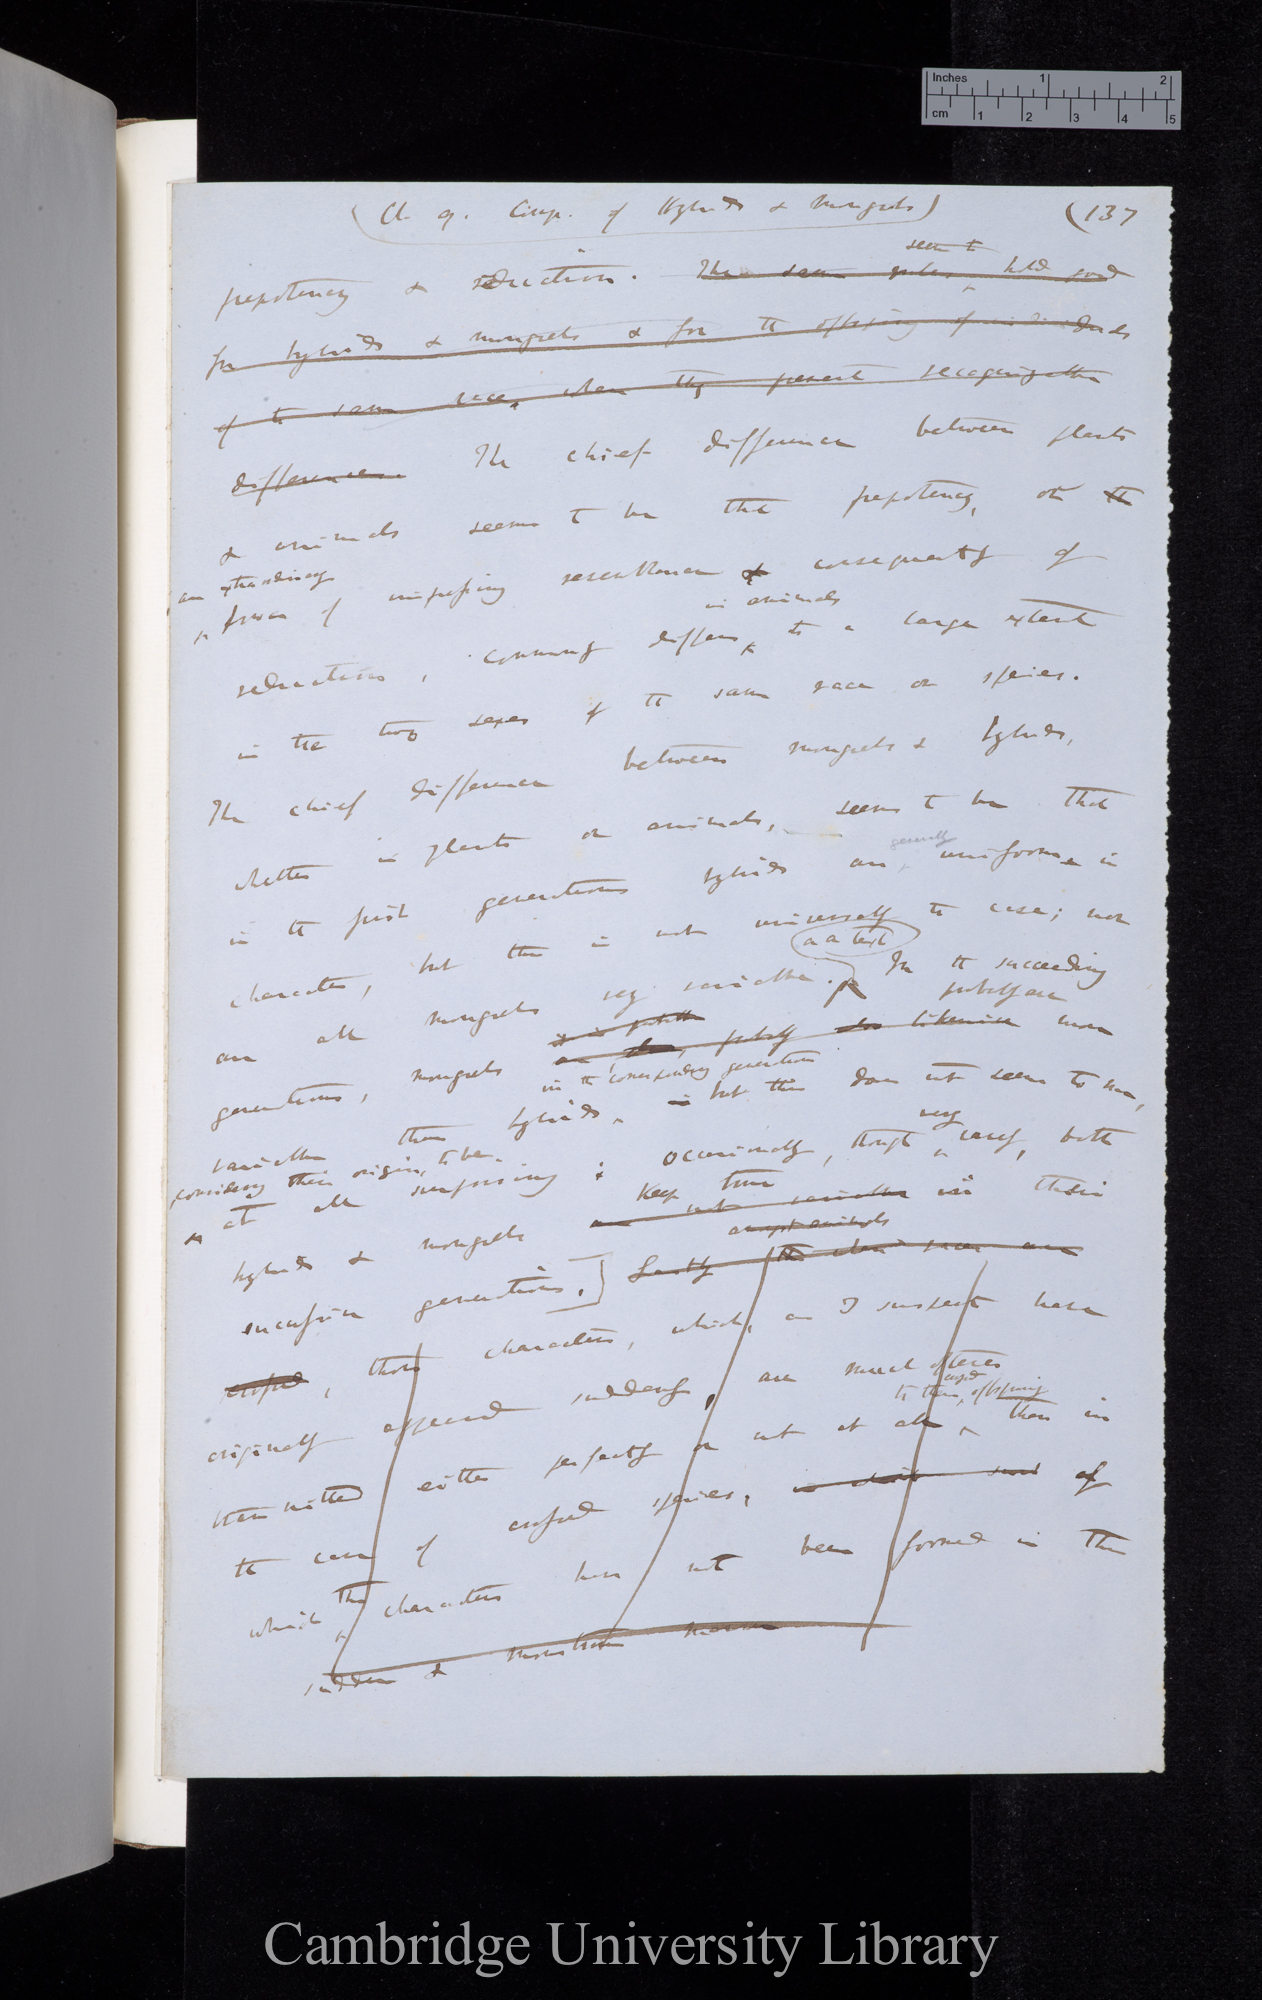 Inches 1 2
cm 1 2 3 4 5
(Ch 9. Comp. of Hybrids & Mongrels)
(137
seem to
prepotency & reduction. The same rules hold good
for hybrids & mongrels & for the offspring of individuals
of the same race, when they present recognizable
differences. The chief difference between plants
& animals seems to be that prepotency, or the
an extraordinary
power of impressing resemblance & consequently of
in animals
reduction, commonly differs, to a large extent
in the two sexes of the same race or species.
The chief difference between mongrels & hybrids,
whether in plants or animals, seems to be that
generally
in the first generations hybrids are uniform in
character, but this is not universally the case; nor
are all mongrels very variable. In the succeeding
probably are
generations, mongrels probably likewise more
in the corresponding generations
variable than hybrids, but this does not seem to me,
considering their origin, to be
very
at all surprising; occasionally, though rarely, both
Keep true
hybrids & mongrels not variable in their
amongst animals
successive generations.] Lastly when are
crossed, those characters, which, as I suspect have
originally appeared suddenly, are much oftener
to their crossed offspring
transmitted either perfectly or not at all, than in
the case of crossed species, of
the
which characters have not been formed in this
sudden & monstrous manner
Cambridge University Library